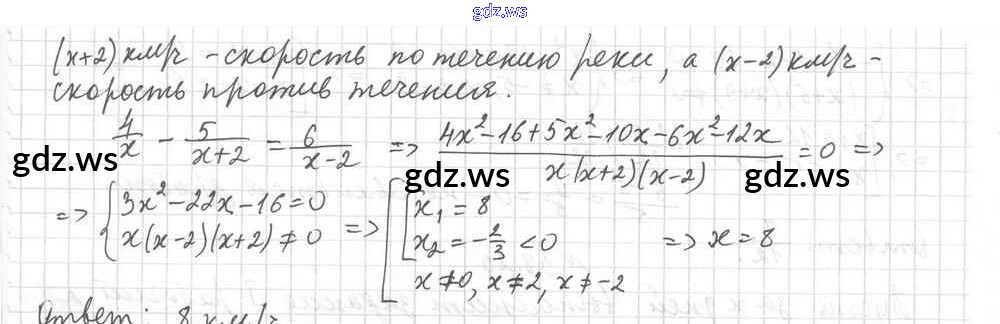 gdz.ws
(x+2) км/ч - скорость по течению реки, а (x-2) км/ч -
скорость против течения.
4/x - 5/(x+2) = 6/(x-2) => (4x²-16+5x²-10x-6x²-12x)/(x(x+2)(x-2)) = 0 =>
gdz.ws gdz.ws gdz.ws
=> { 3x²-22x-16=0 => { [ x₁ = 8
x(x-2)(x+2) ≠ 0 x₂ = -2/3 < 0 => x = 8
x≠0, x≠2, x≠-2
Ответ: 8 км/ч